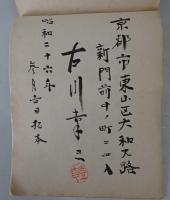 京都市東山区大和大路
新門前十ノ町二四八
古川幸三
昭和二十六年
参月吉日 拓本